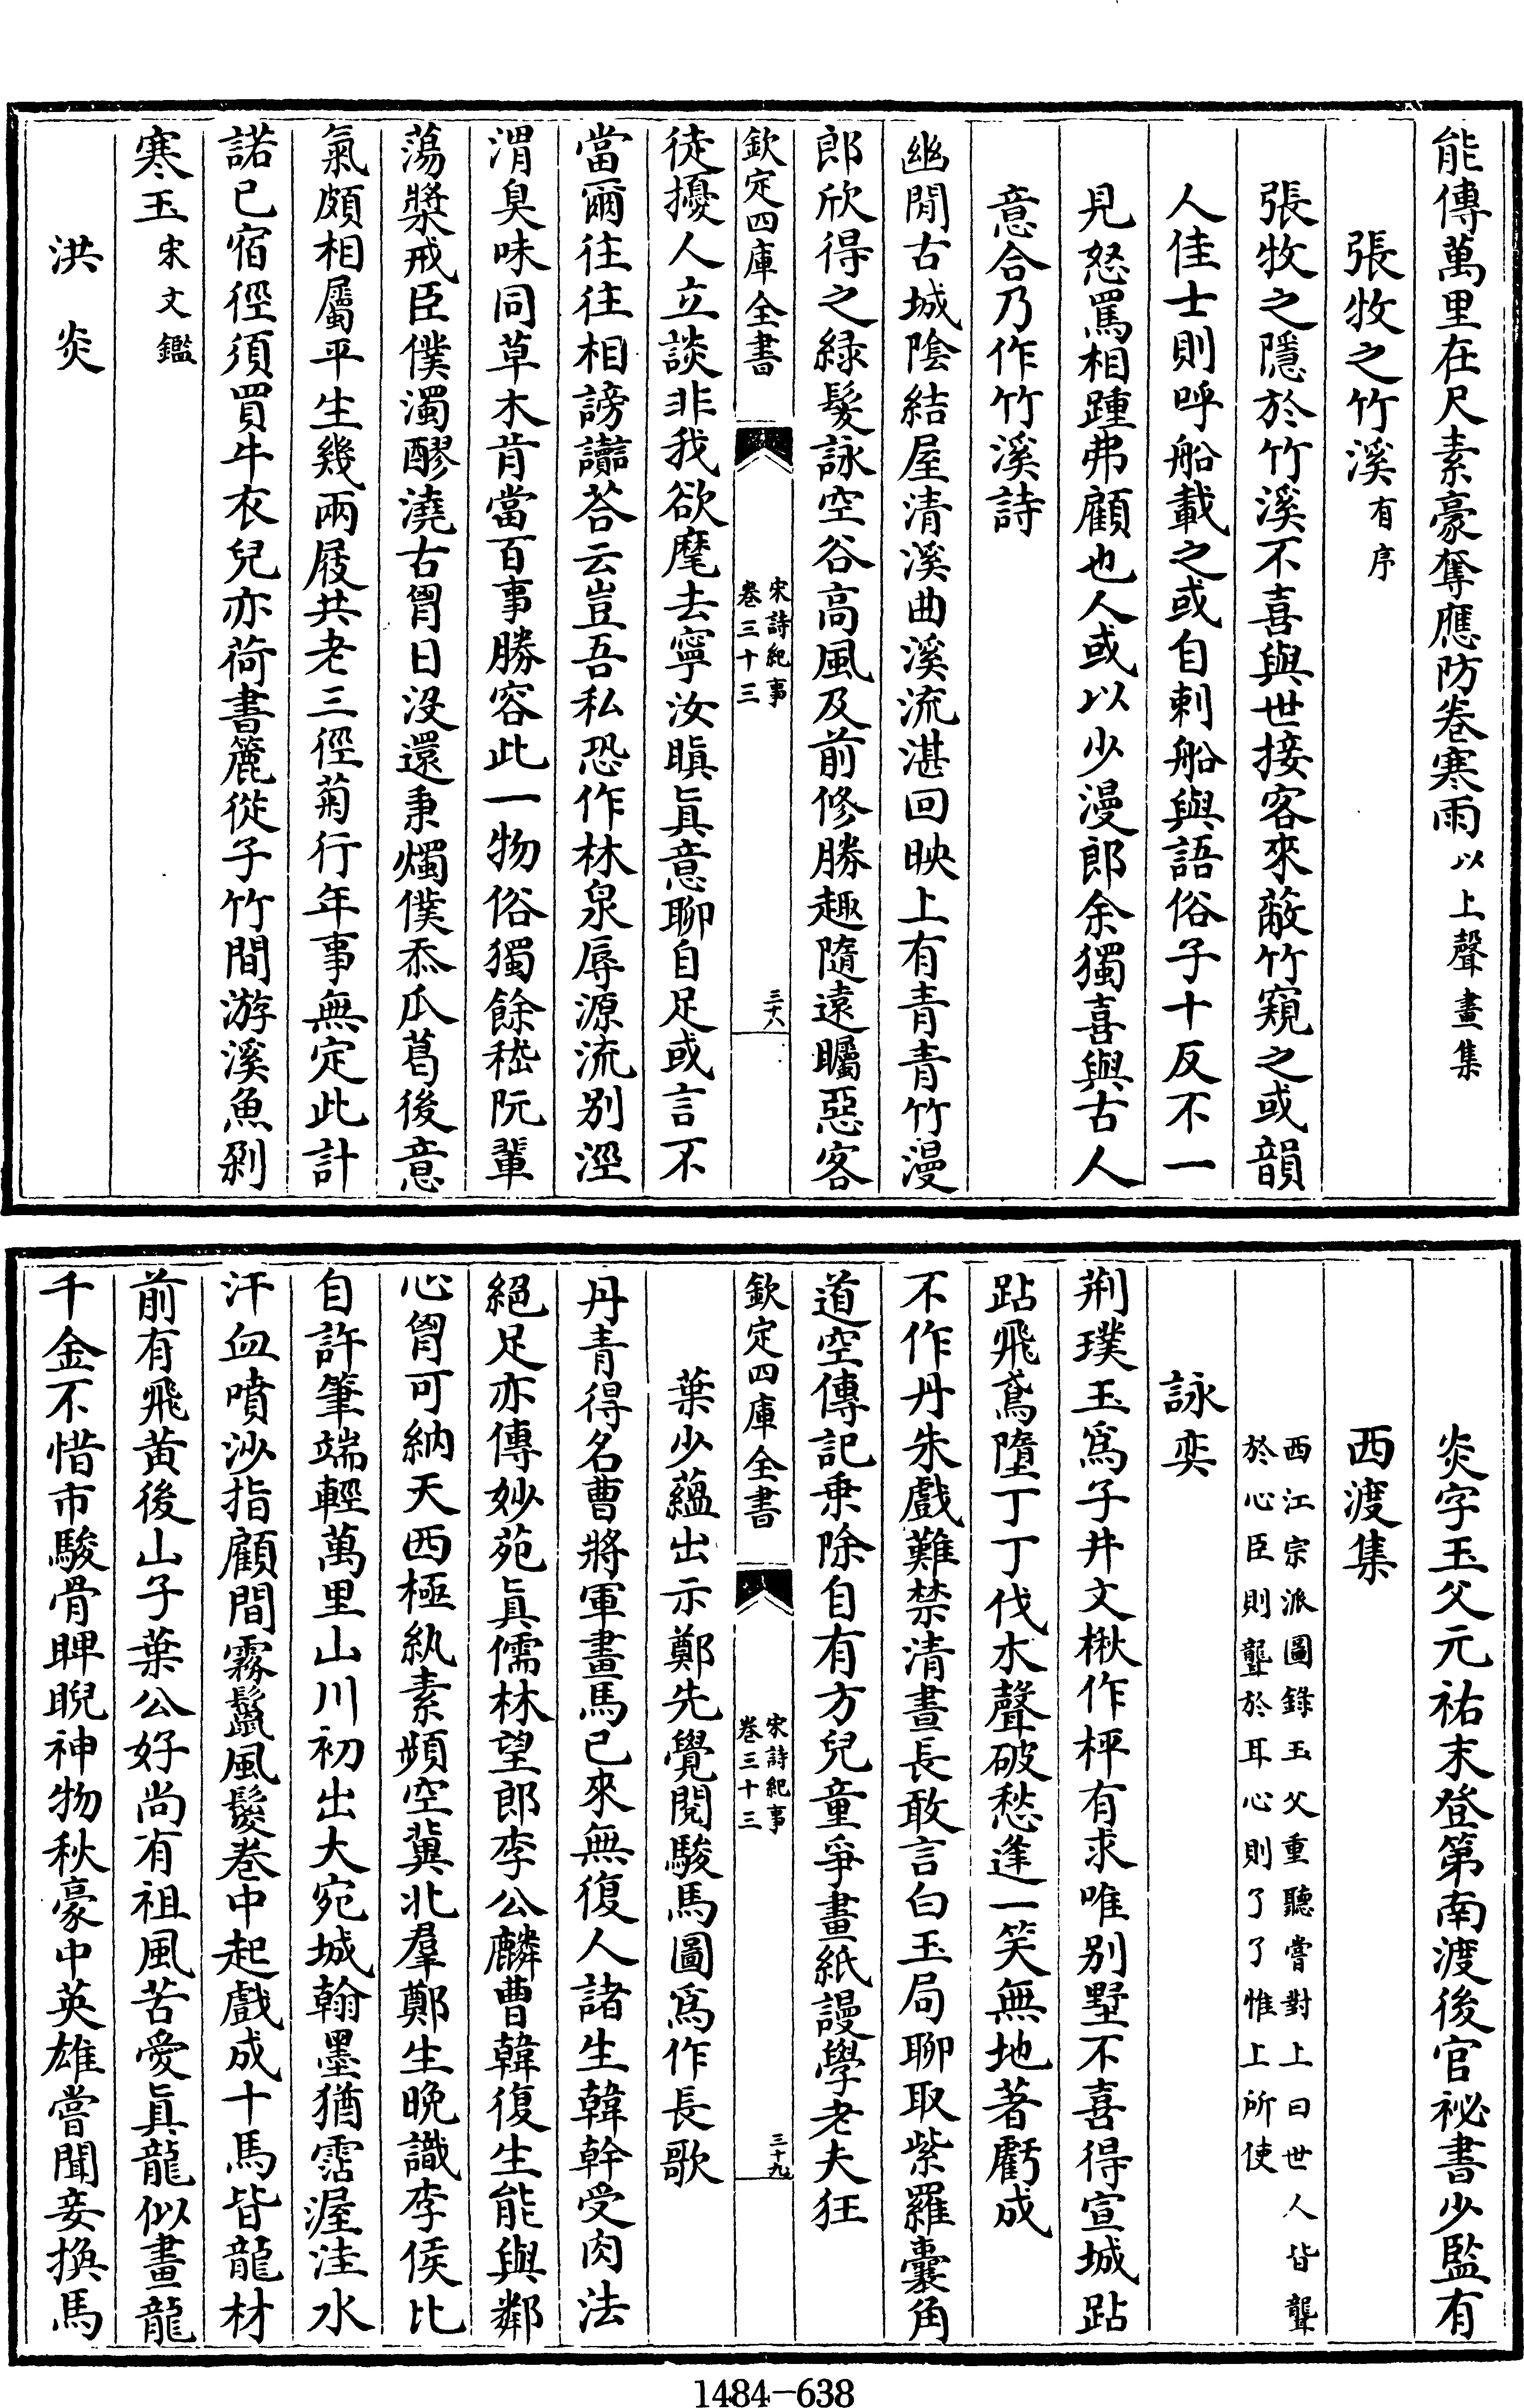 能傳萬里在尺素豪奪應防卷寒雨以上聲畫集
張牧之竹溪有序
張牧之隱於竹溪不喜與世接客來蔽竹窺之或韻
人佳士則呼船載之或自剌船與語俗子十反不一
見怒罵相踵弗顧也人或以少漫郎余獨喜與古人
意合乃作竹溪詩
幽閒古城陰結屋清溪曲溪流湛回映上有青青竹漫
郎欣得之緑髮詠空谷高風及前修勝趣隨遠矚惡客
欽定四庫全書
宋詩紀事
卷三十三
三十八
徒擾人立談非我欲麾去寧汝瞋眞意聊自足或言不
當爾往往相謗讟荅云豈吾私恐作林泉辱源流别涇
渭臭味同草木肯當百事勝容此一物俗獨餘嵇阮輩
蕩槳戒臣僕濁醪澆古胷日没還秉燭僕忝瓜葛後意
氣頗相屬平生幾兩屐共老三徑菊行年事無定此計
諾已宿徑須買牛衣兒亦荷書簏從子竹間游溪魚剁
寒玉宋文鑑
洪炎
炎字玉父元祐末登第南渡後官祕書少監有
西渡集
西江宗派圖錄玉父重聽嘗對上曰世人皆聾
於心臣則聾於耳心則了了惟上所使
詠奕
荆璞玉爲子井文楸作枰有求唯别墅不喜得宣城跕
跕飛鳶墮丁丁伐木聲破愁逢一笑無地著虧成
不作丹朱戲難禁清晝長敢言白玉局聊取紫羅囊角
道空傳記乗除自有方兒童爭畫紙謾學老夫狂
欽定四庫全書
宋詩紀事
卷三十三
三十九
葉少蘊出示鄭先覺閱駿馬圖爲作長歌
丹青得名曹將軍畫馬已來無復人諸生韓幹受肉法
絕足亦傳妙苑眞儒林望郎李公麟曹韓復生能與鄰
心胷可納天西極紈素頻空冀北羣鄭生晚識李侯比
自許筆端輕萬里山川初出大宛城翰墨猶霑渥洼水
汗血噴沙指顧間霧鬛風鬉卷中起戲成十馬皆龍材
前有飛黃後山子葉公好尚有祖風苦愛眞龍似畫龍
千金不惜市駿骨睥睨神物秋豪中英雄嘗聞妾換馬
1484-638